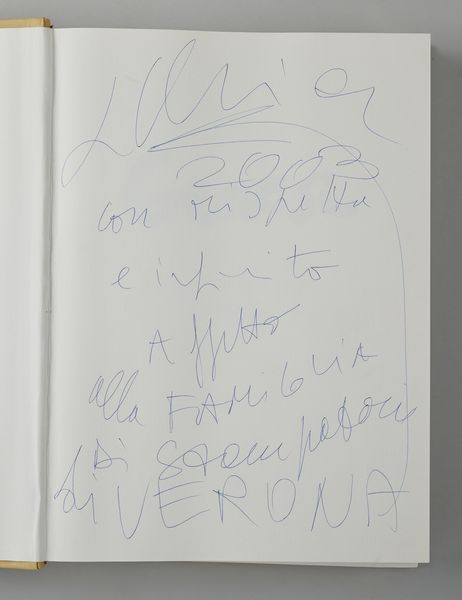 2003
con rispetto
e infinito
Affetto
alla FAMIGLIA
di stampatori
di VERONA